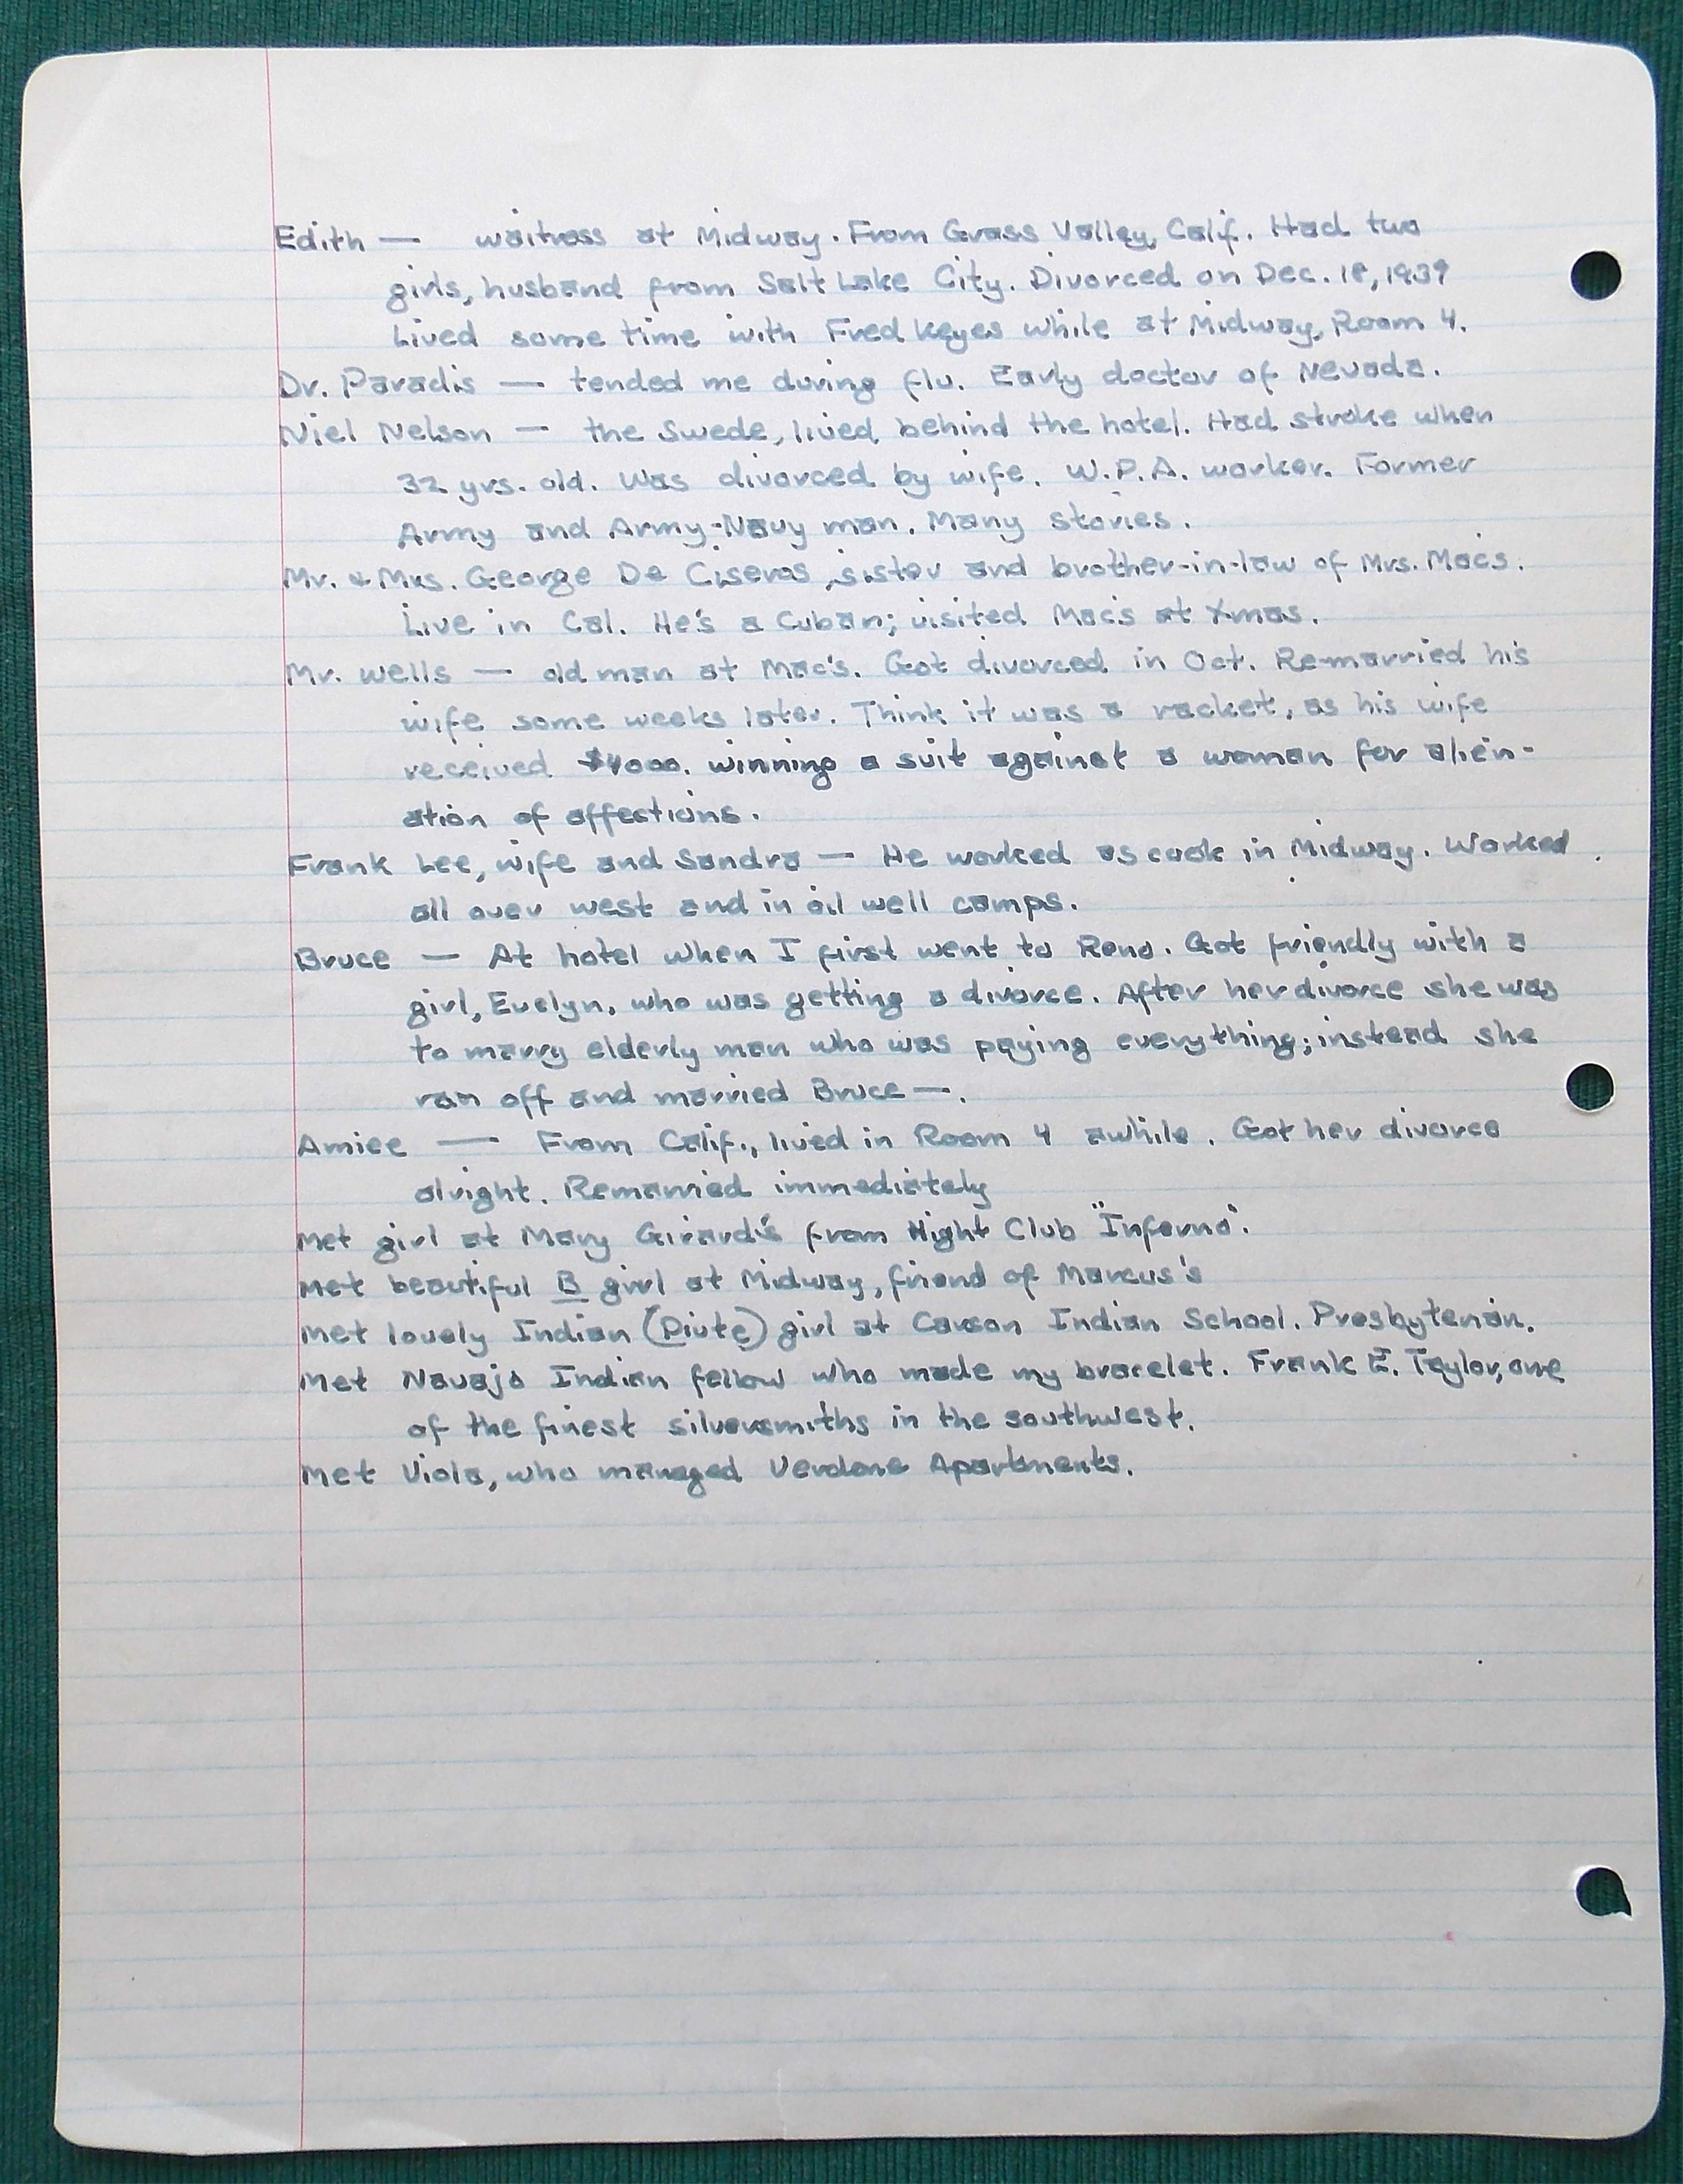 Edith — waitress at Midway. From Grass Valley, Calif. Had two
girls, husband from Salt Lake City. Divorced on Dec. 18, 1939
Lived some time with Fred Keyes while at Midway, Room 4.
Dr. Paradis — tended me during flu. Early doctor of Nevada.
Niel Nelson — the Swede, lived behind the hotel. Had stroke when
32 yrs. old. Was divorced by wife. W.P.A. worker. Former
Army and Army-Navy man. Many stories.
Mr. & Mrs. George De Ciseros, sister and brother-in-law of Mrs. Macs.
Live in Cal. He's a Cuban; visited Macs at Xmas.
Mr. Wells — old man at Mac's. Got divorced in Oct. Re-married his
wife some weeks later. Think it was a racket, as his wife
received $4000. winning a suit against a woman for alien-
ation of affections.
Frank Lee, wife and Sandra — He worked as cook in Midway. Worked
all over west and in oil well camps.
Bruce — At hotel when I first went to Reno. Got friendly with a
girl, Evelyn, who was getting a divorce. After her divorce she was
to marry elderly man who was paying everything; instead she
ran off and married Bruce —.
Amiee — From Calif., lived in Room 4 awhile. Got her divorce
alright. Remarried immediately
Met girl at Mary Girard's from Night Club "Inferno".
Met beautiful B girl at Midway, friend of Marcus's
Met lovely Indian (Piute) girl at Carson Indian School. Presbyterian.
Met Navajo Indian fellow who made my bracelet. Frank E. Taylor, one
of the finest silversmiths in the southwest.
Met Viola, who managed Verdone Apartments.